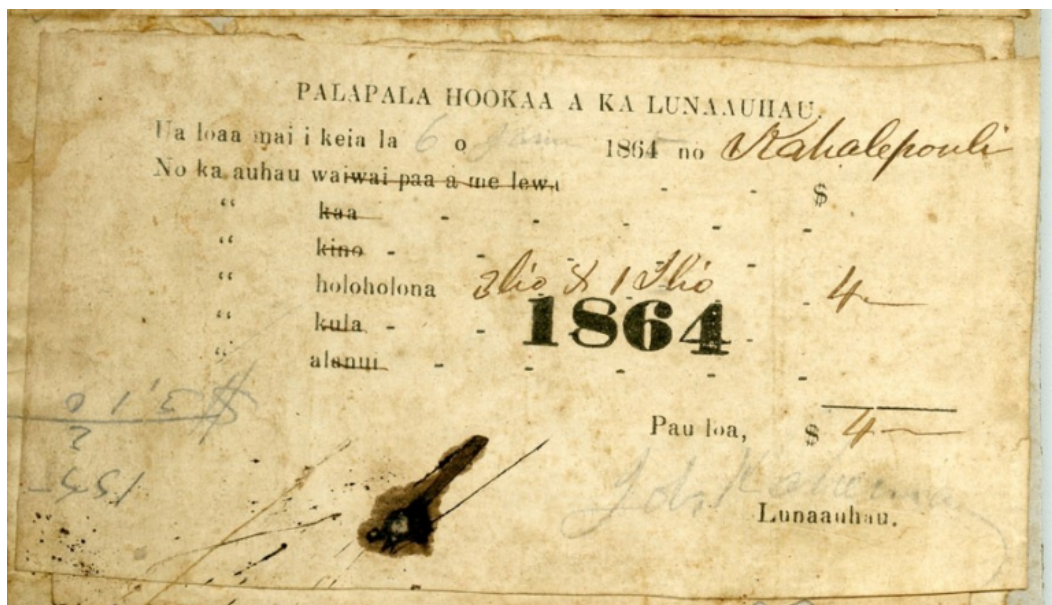 PALAPALA HOOKAA A KA LUNAAUHAU.
Ua loaa mai i keia la 6 o 1864 no Kahalepouli
No ka auhau waiwai paa a me lewa - - $
“ kaa - - - - - -
“ kino - - - - - -
“ holoholona 3 lio & 1 Ilio - 4—
“ kula - - - -
1864
“ alanui - - - - - -
Pau loa, $ 4—
Lunaauhau.
$3.10
2